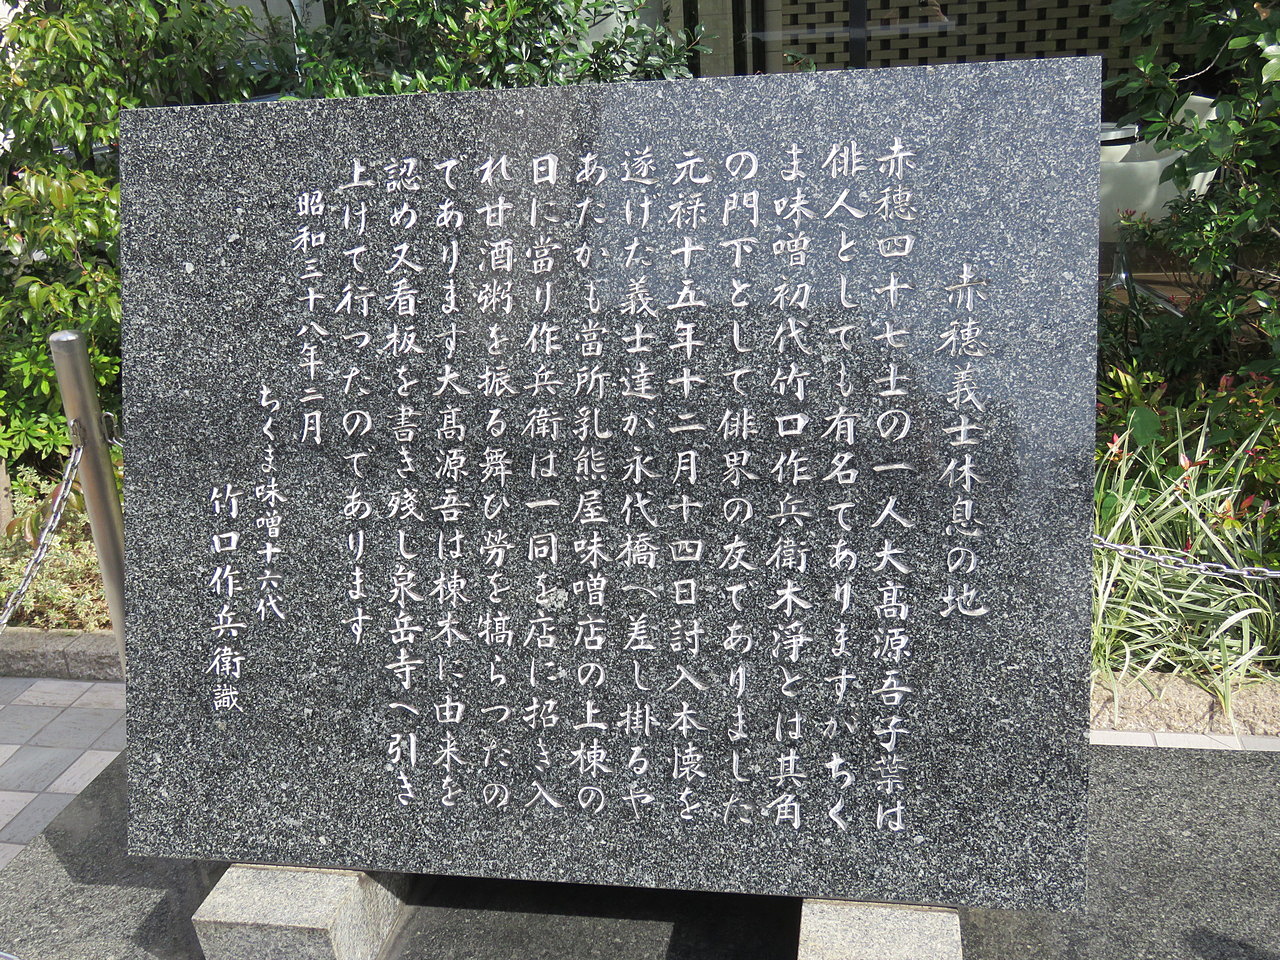 赤穂義士休息の地
赤穂四十七士の一人大髙源吾子葉は
俳人としても有名でありますがちく
ま味噌初代竹口作兵衛木浄とは其角
の門下として俳界の友でありました
元禄十五年十二月十四日討入本懐を
遂げた義士達が永代橋へ差し掛るや
あたかも當所乳熊屋味噌店の上棟の
日に當り作兵衛は一同を店に招き入
れ甘酒粥を振る舞ひ労を犒らつたの
であります大髙源吾は棟木に由来を
認め又看板を書き残し泉岳寺へ引き
上げて行つたのであります
昭和三十八年二月
ちくま味噌十六代
竹口作兵衛識